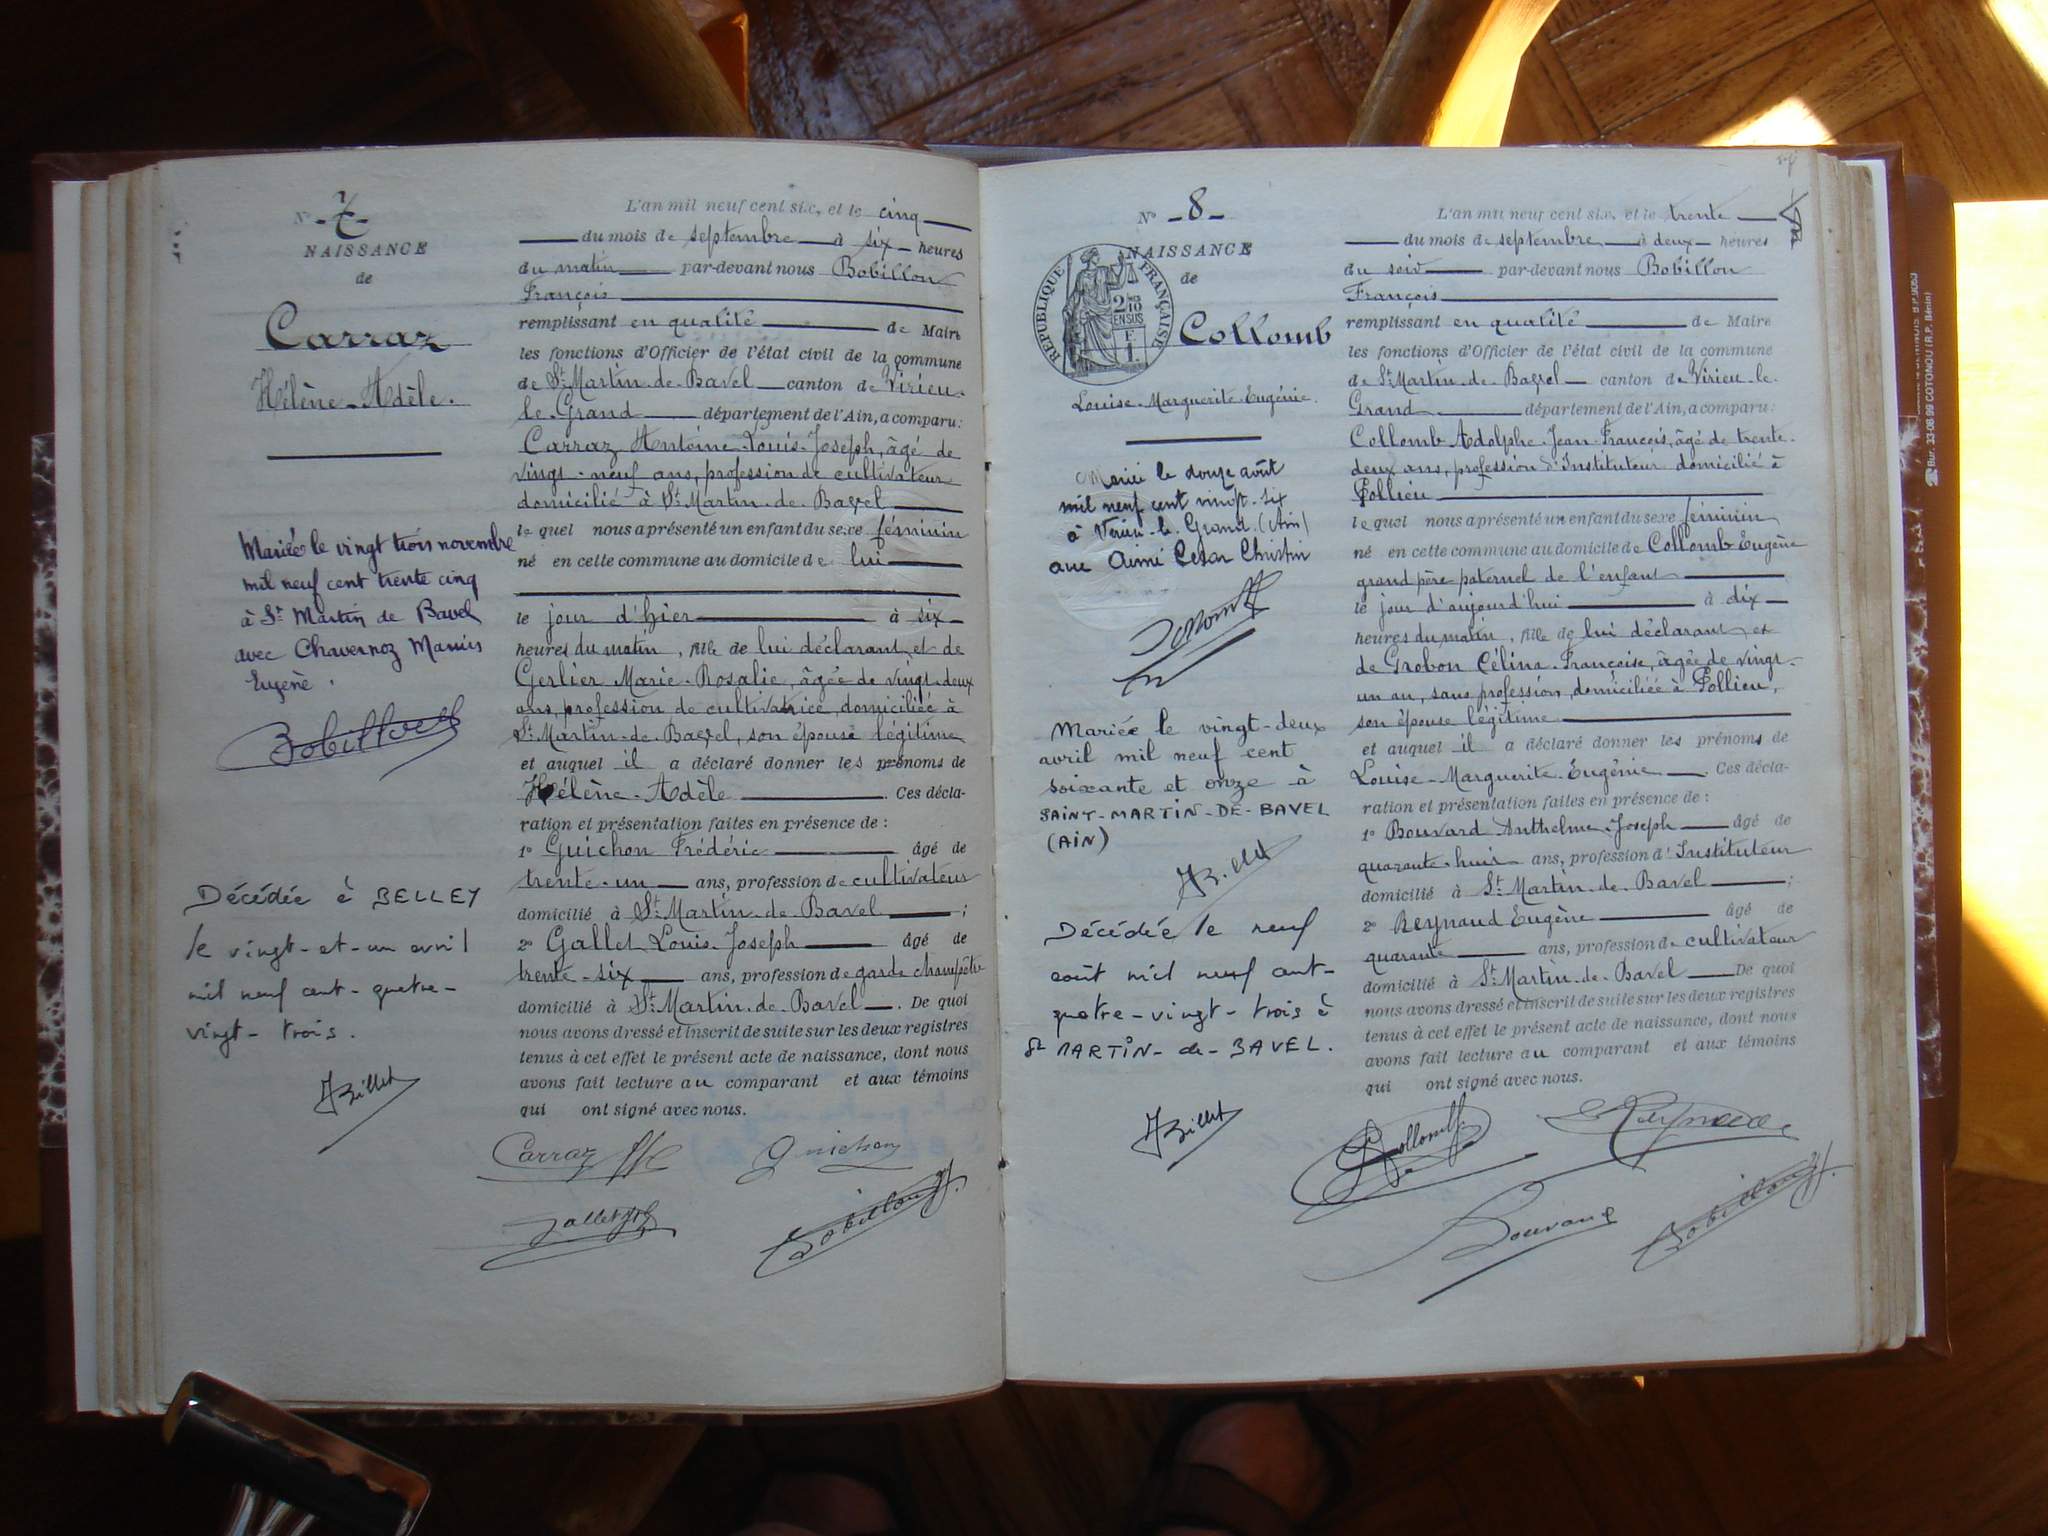 N° - 7 -
NAISSANCE
de
Carraz
Hélène-Adèle.
Mariée le vingt trois novembre
mil neuf cent trente cinq
à St Martin de Bavel
avec Chavernoz Marius
Eugène.
Bobillon
Décédée à BELLEY
le vingt-et-un avril
mil neuf cent-quatre-
vingt-trois.
JBillet
L'an mil neuf cent six, et le cinq
du mois de septembre à six heures
du matin par-devant nous Bobillon
François
remplissant en qualité de Maire
les fonctions d'Officier de l'état civil de la commune
de St Martin-de-Bavel canton de Virieu-
le-Grand département de l'Ain, a comparu:
Carraz Antoine-Louis-Joseph, âgé de
vingt-neuf ans, profession de cultivateur
domicilié à St Martin-de-Bavel
lequel nous a présenté un enfant du sexe féminin
né en cette commune au domicile de lui
le jour d'hier à six
heures du matin, fille de lui déclarant et de
Gerlier Marie-Rosalie, âgée de vingt-deux
ans, profession de cultivatrice, domiciliée à
St Martin-de-Bavel, son épouse légitime
et auquel il a déclaré donner les prénoms de
Hélène-Adèle. Ces décla-
ration et présentation faites en présence de :
1° Guichon Frédéric âgé de
trente-un ans, profession de cultivateur
domicilié à St Martin-de-Bavel ;
2° Gallet Louis-Joseph âgé de
trente-six ans, profession de garde champêtre
domicilié à St Martin-de-Bavel. De quoi
nous avons dressé et inscrit de suite sur les deux registres
tenus à cet effet le présent acte de naissance, dont nous
avons fait lecture au comparant et aux témoins
qui ont signé avec nous.
Carraz Guichon
Gallet Bobillon
N° - 8 -
NAISSANCE
de
RÉPUBLIQUE FRANÇAISE
2/10 EN SUS
F 1.
Collomb
Louise-Marguerite-Eugénie.
Mariée le douze août
mil neuf cent vingt-six
à Virieu-le-Grand (Ain)
avec Aimé Cesar Christin
Mariée le vingt-deux
avril mil neuf cent
soixante et onze à
SAINT-MARTIN-DE-BAVEL
(AIN)
JBillet
Décédée le neuf
août mil neuf cent-
quatre-vingt-trois à
St MARTIN-de-BAVEL.
JBillet
L'an mil neuf cent six, et le trente
du mois de septembre à deux heures
du soir par-devant nous Bobillon
François
remplissant en qualité de Maire
les fonctions d'Officier de l'état civil de la commune
de St Martin-de-Bavel canton de Virieu-le-
Grand département de l'Ain, a comparu:
Collomb Adolphe-Jean-François, âgé de trente-
deux ans, profession d'Instituteur domicilié à
Pollieu
lequel nous a présenté un enfant du sexe féminin
né en cette commune au domicile de Collomb Eugène
grand père paternel de l'enfant
le jour d'aujourd'hui à dix
heures du matin, fille de lui déclarant et
de Grobon Célina-Françoise, âgée de vingt-
un an, sans profession, domiciliée à Pollieu,
son épouse légitime
et auquel il a déclaré donner les prénoms de
Louise-Marguerite-Eugénie. Ces décla-
ration et présentation faites en présence de :
1° Bouvard Anthelme-Joseph âgé de
quarante-huit ans, profession d'Instituteur
domicilié à St Martin-de-Bavel ;
2° Reynaud Eugène âgé de
quarante ans, profession de cultivateur
domicilié à St Martin-de-Bavel De quoi
nous avons dressé et inscrit de suite sur les deux registres
tenus à cet effet le présent acte de naissance, dont nous
avons fait lecture au comparant et aux témoins
qui ont signé avec nous.
Collomb Reynaud
Bouvard Bobillon
COTONOU (R.P. Bénin)